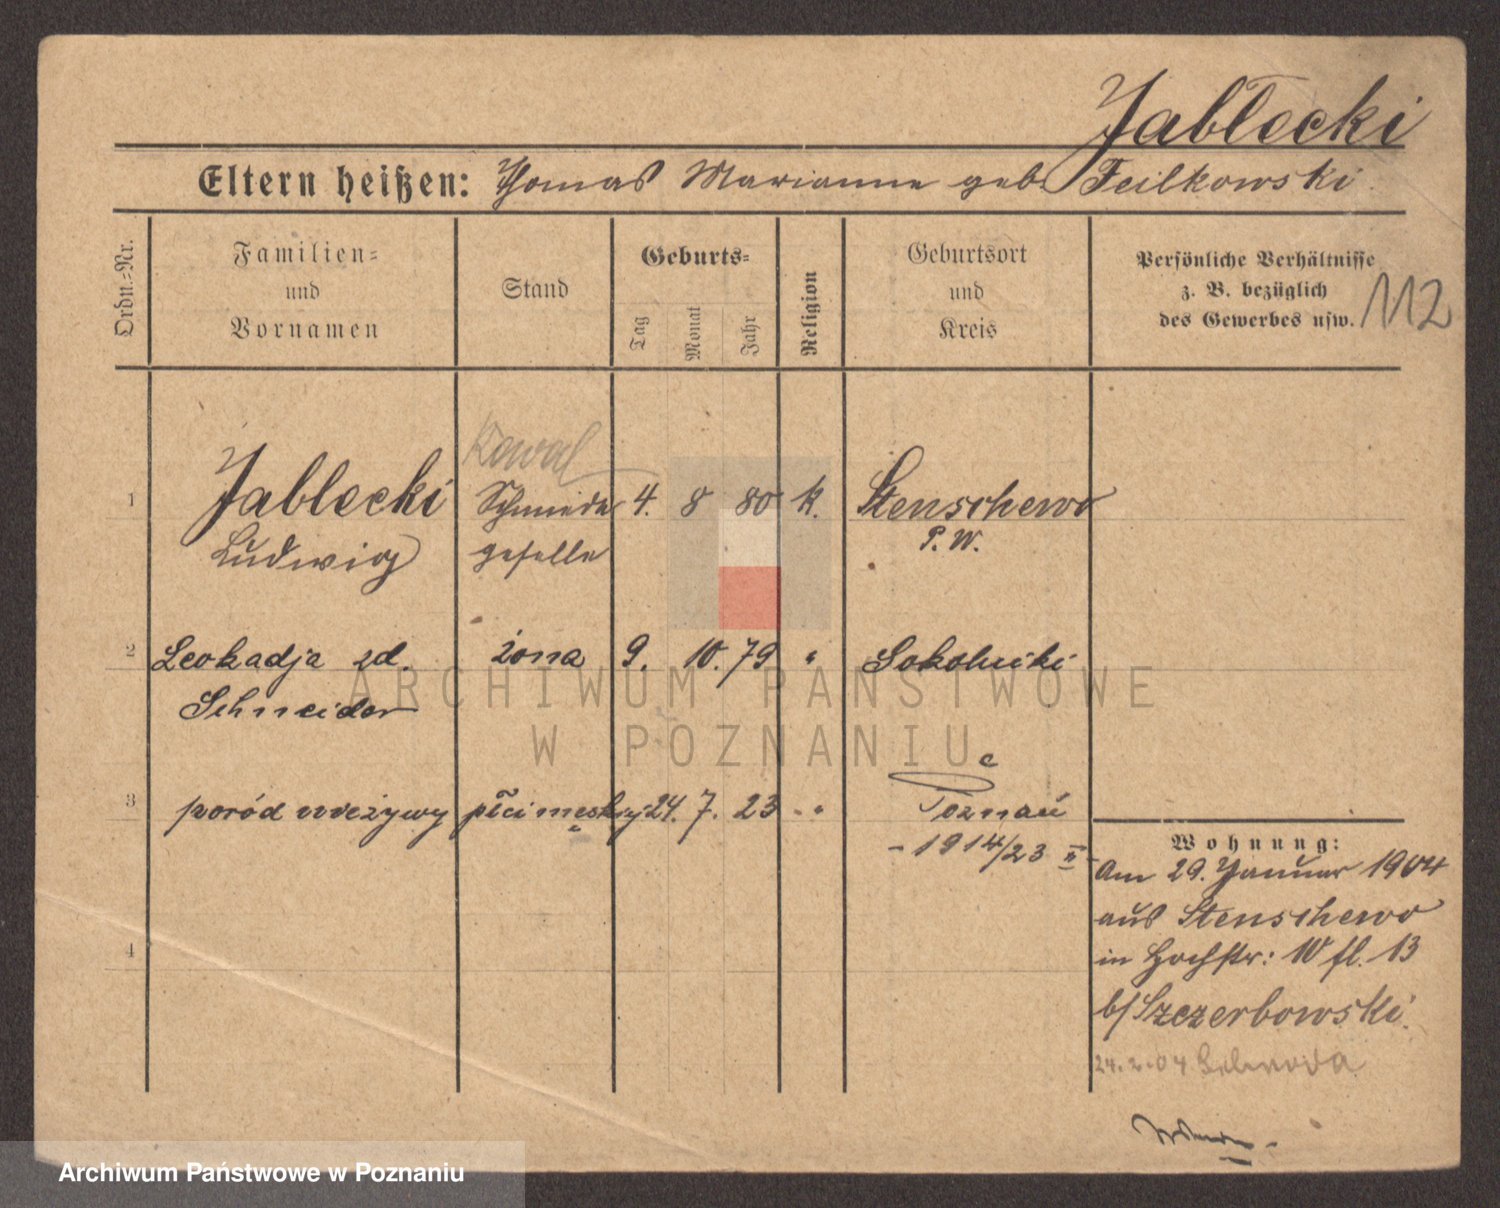 Jabłecki
Eltern heißen: Thomas Marianne geb. Feilkowski
Ordn.-Nr.
Familien-
und
Vornamen
Stand
Geburts-
Tag
Monat
Jahr
Religion
Geburtsort
und
Kreis
Persönliche Verhältnisse
z. B. bezüglich
des Gewerbes usw.
112
Kowal
1 Jablecki Schmiede 4. 8 80 k. Stenschewo
Ludwig geselle P. W.
2 Leokadja zd. żona 9. 10. 79 " Sokolniki
Schneider
ARCHIWUM PAŃSTWOWE
W POZNANIU
3 poród nieżywy płci męskiej 24. 7. 23 - " Poznań
- 1914/23 II
4
Wohnung:
Am 29. Januar 1904
aus Stenschewo
in Hochstr: 10 fl. 13
b/ Szczerbowski.
24.2.04
Archiwum Państwowe w Poznaniu